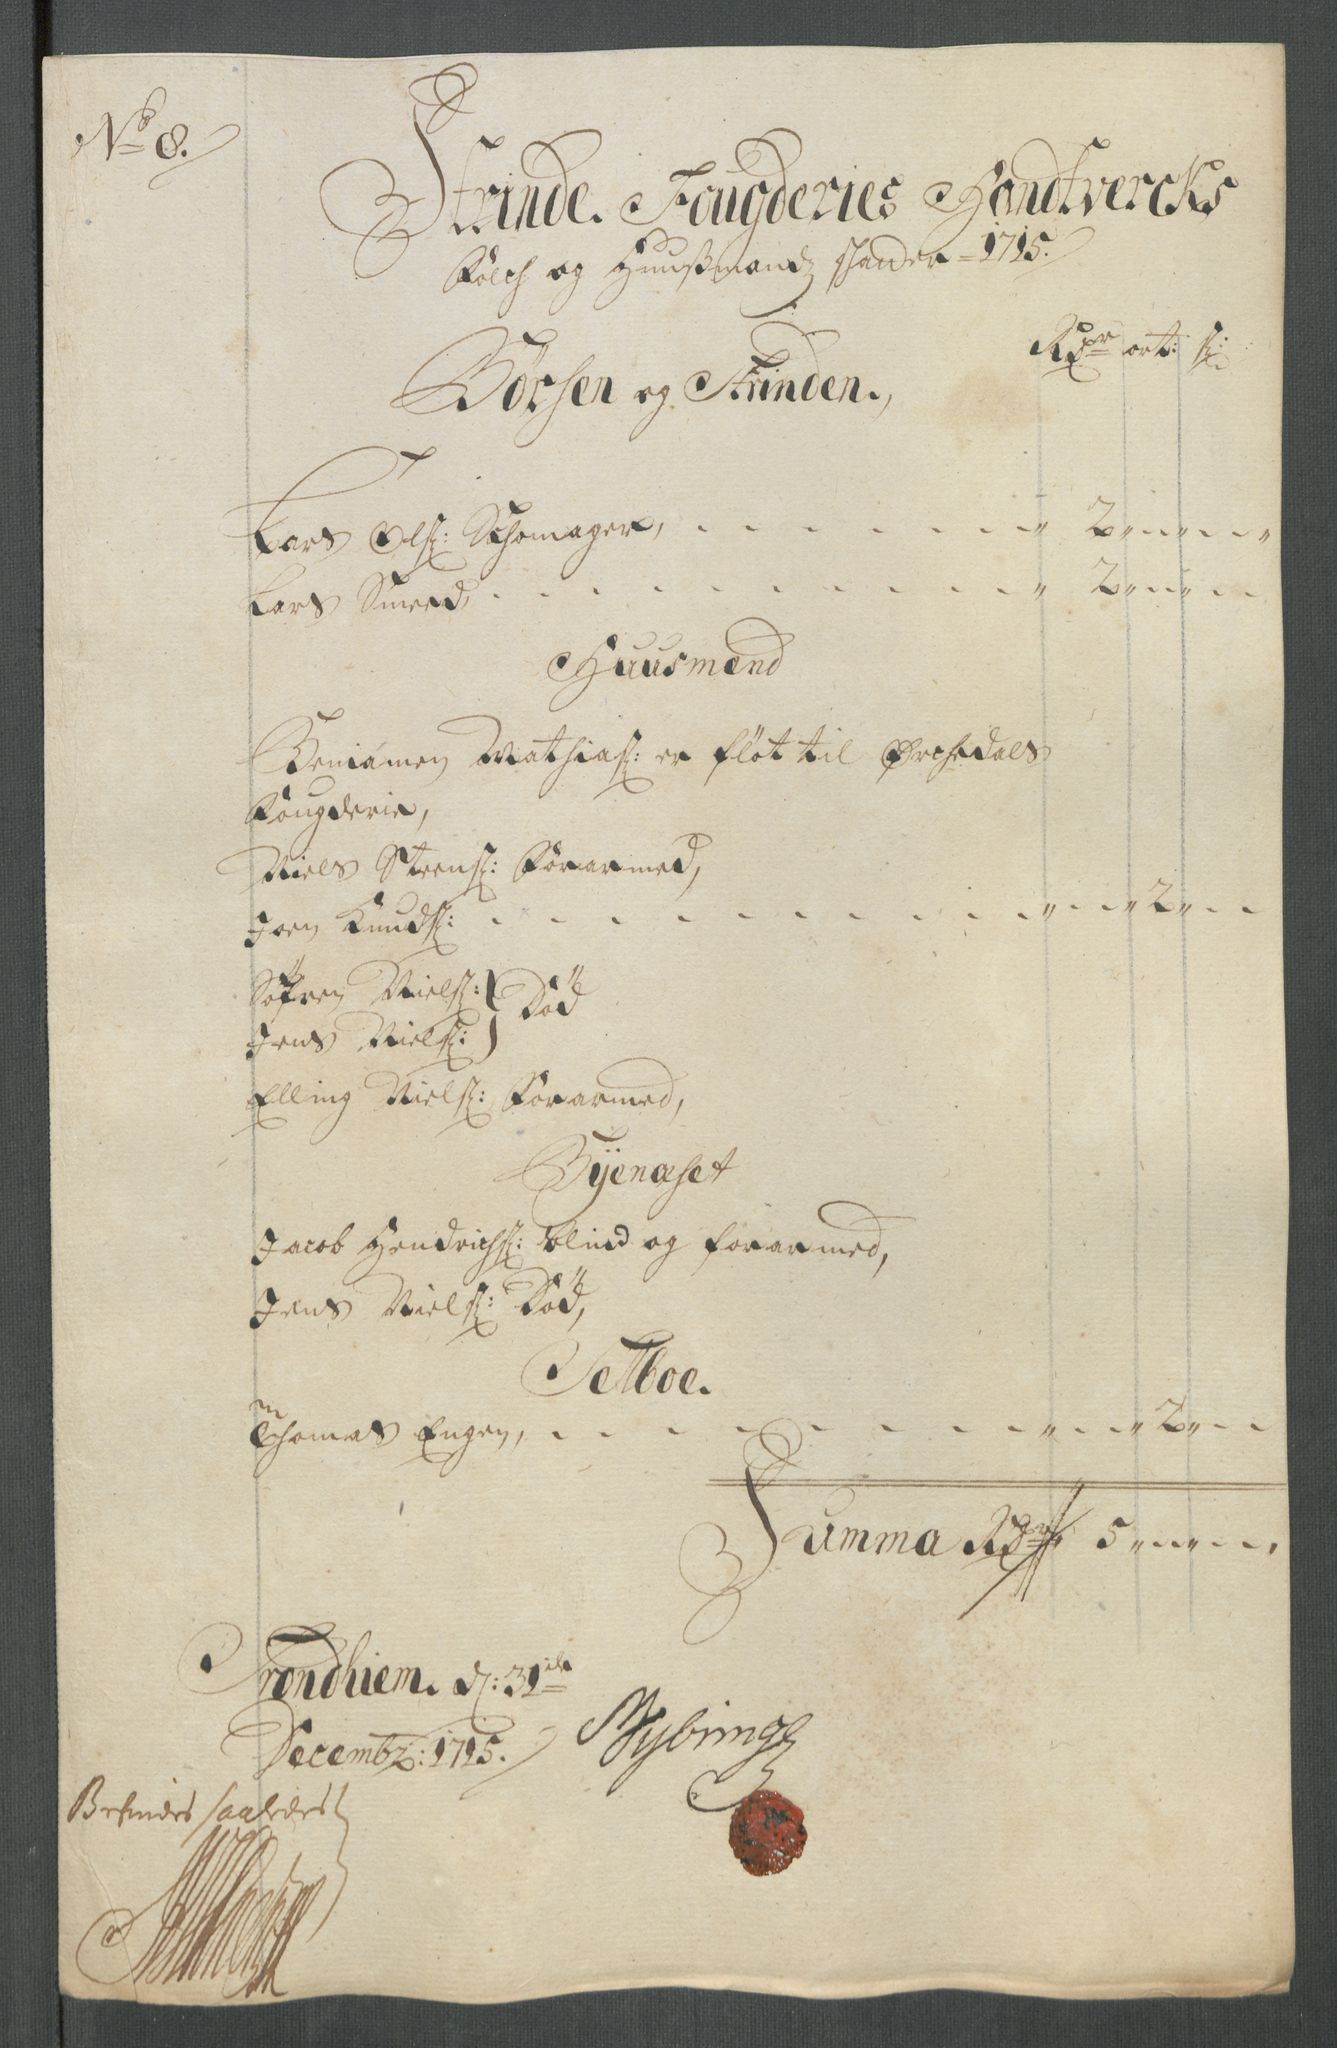 No 8.
Strinde Fougderies Handtvercks
Folch og Huusmands skatter 1715.
Rdr ort: s:
Børsen og Strinden.,
Lars Ols: Schomager, - - - - - - - " 2 " - " - - "
Lars Smed, - - - - - - - - - - " 2 " - " - -
Huusmænd
Beniámen Mathias: er fløt til Ørchedals
Fougderie,
Niels Steens: Forarmed,
Joen Knuds: - - - - - - - - - - " - - " 2 " - -
Söfren Niels: } Död
Jens Niels: }
Elling Niels: Forarmed,
Byenæset
Jacob Hendrichs: blind og forarmed,
Jens Niels: Död,
Selboe.
Thomas Engen, - - - - - - - - - " - - " 2 " - -
Summa Rdr 5 " - " - - ,
Trondhiem. d: 31de
Decembr: 1715.
Befindes saaledes